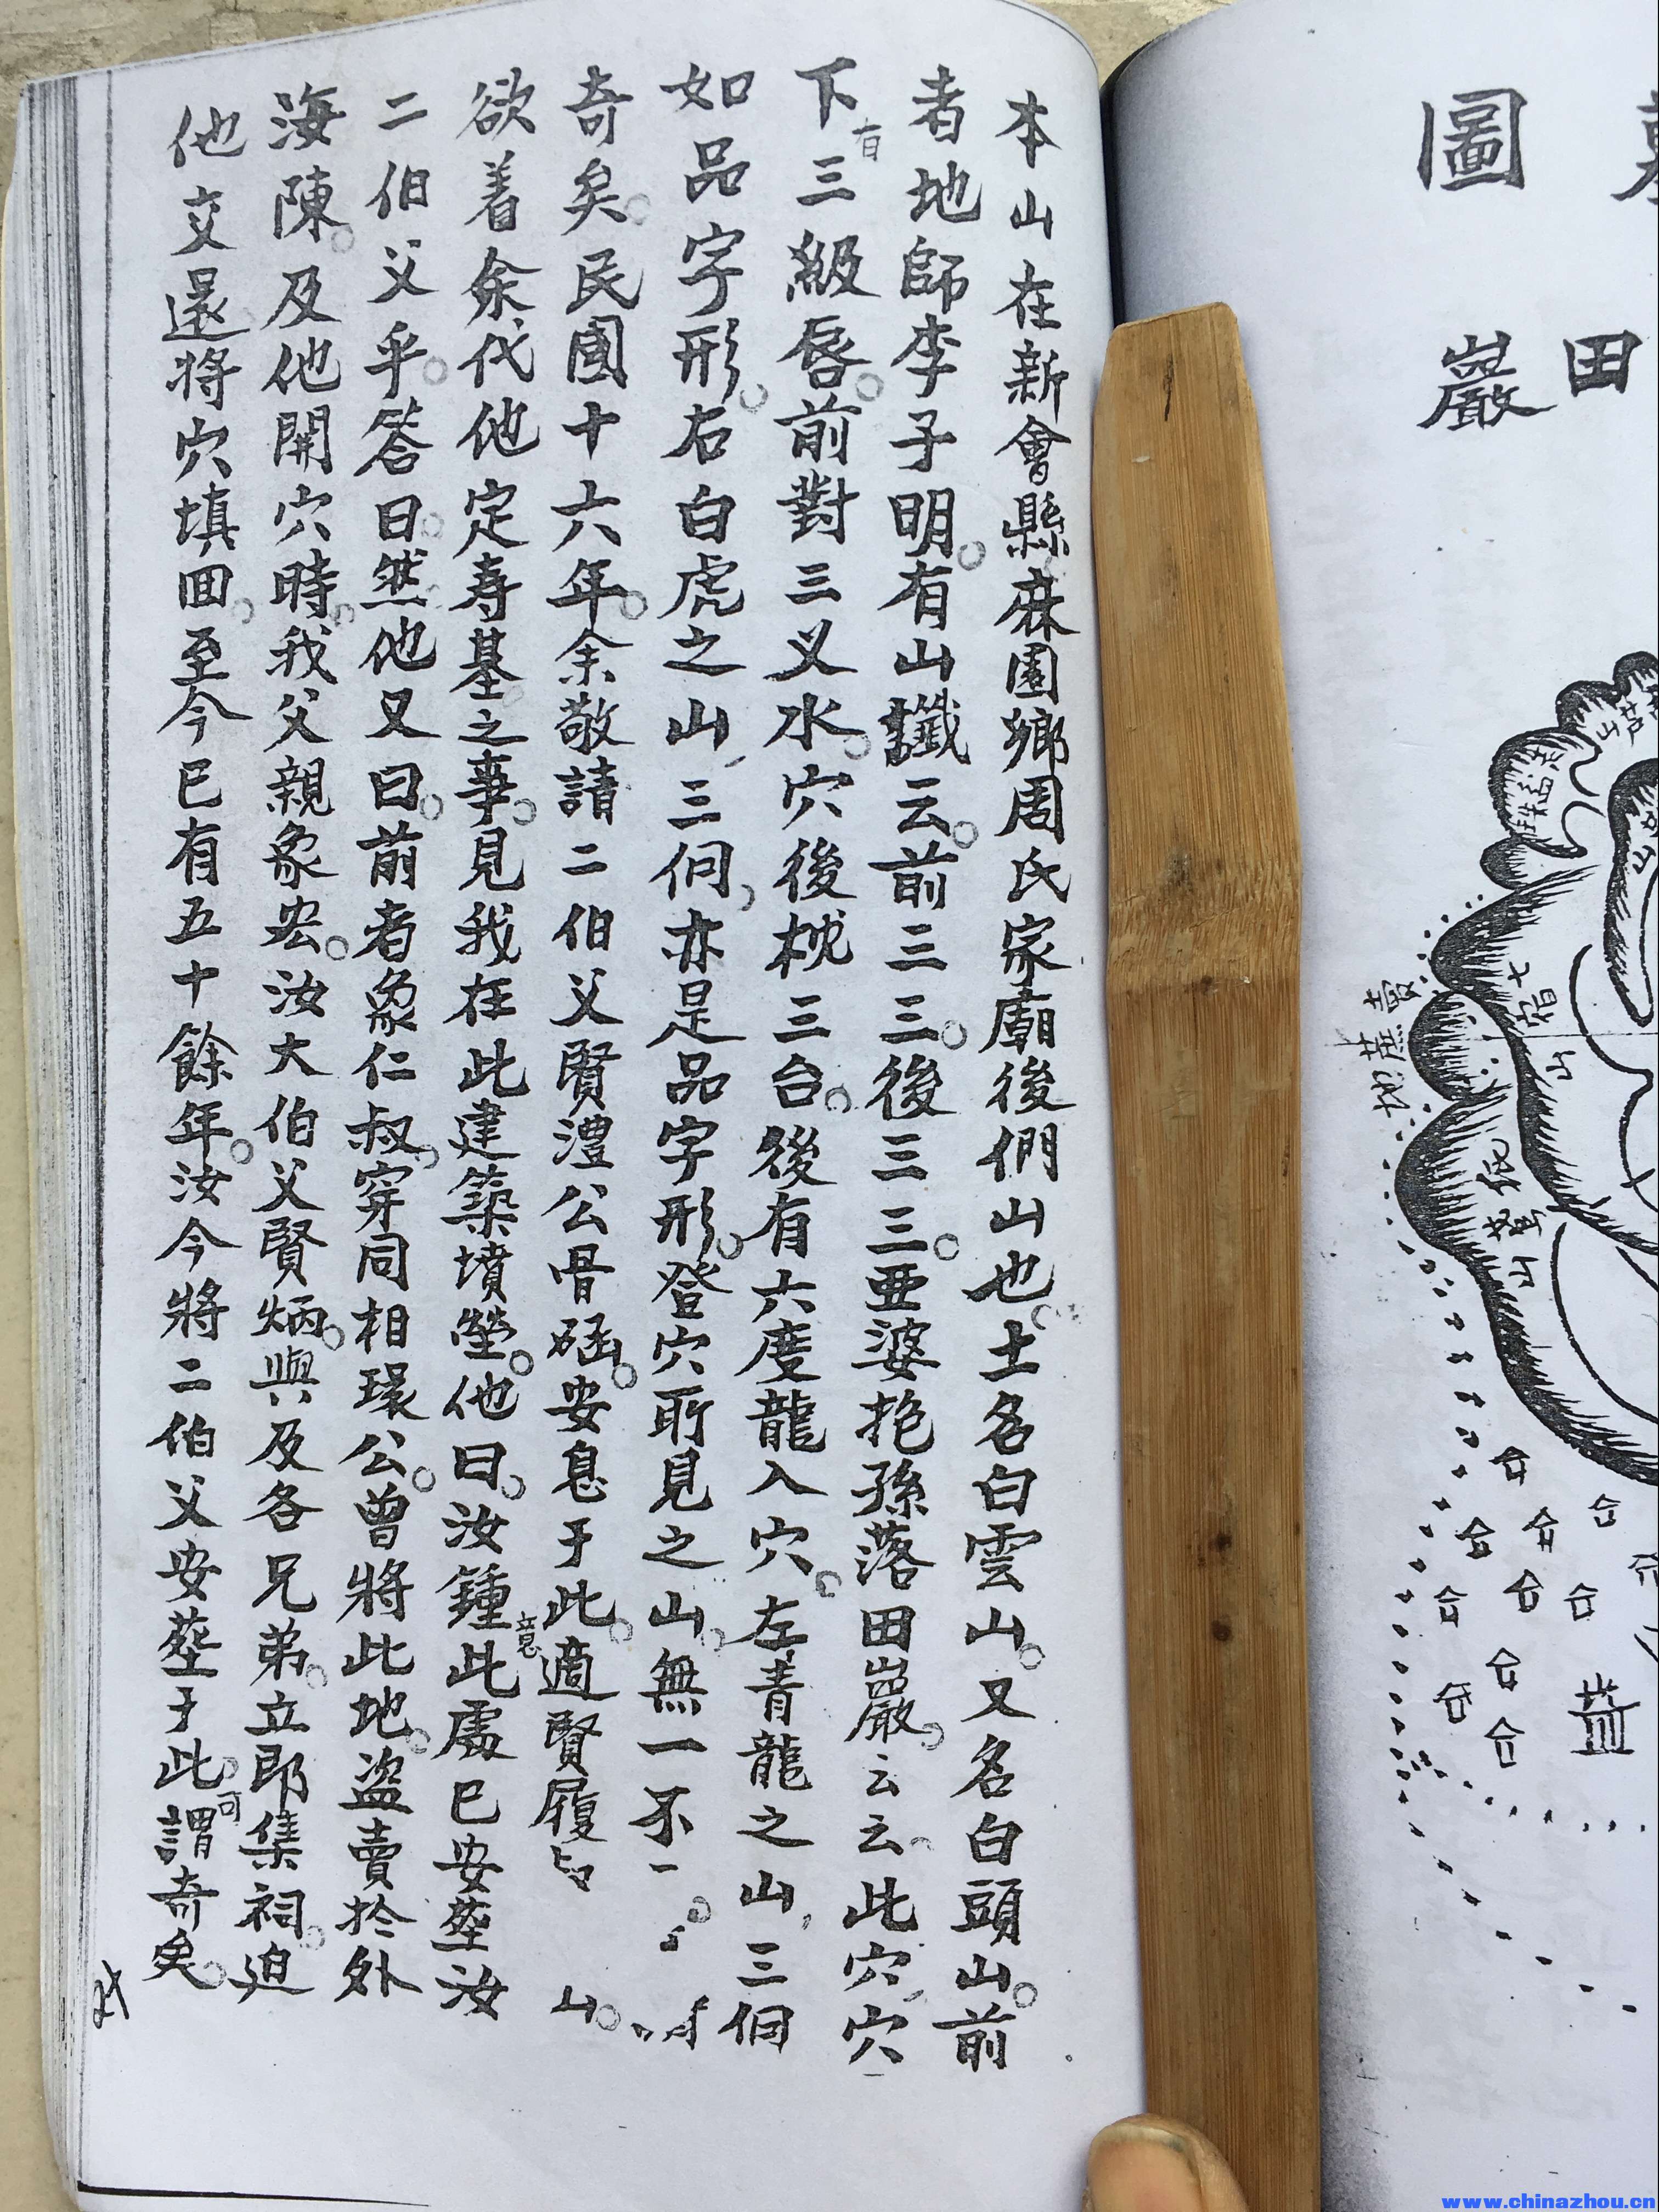 圖
田
巖
本山在新會縣麻園鄉周氏家廟後們山也。土名白雲山。又名白頭山。前
者地師李子明。有山讖云。前三三。後三三。三亜婆抱孫落田巖。云云。此穴穴
下有三級唇。前對三义水。穴後枕三台。後有六度龍入穴。左青龍之山,三個
如品字形。右白虎之山,三個,亦是品字形。登穴所見之山。無一不
奇矣。民國十六年。余敬請二伯父賢澧公骨函。安息于此。適賢履 山。
欲着余代他定寿基之事。見我在此建築墳塋。他曰。汝鍾意此處已安塟汝
二伯父乎。答曰。然。他又曰。前者象仁叔。穿同相環公。曾將此地。盜賣扵外
海陳。及他開穴時。我父親象宏。汝大伯父賢炳。與及各兄弟。立即集祠。迫
他交還將穴填回。至今已有五十餘年。汝今將二伯父安塟于此。可謂奇矣。
七宿山
賣蔗地
山
www.chinazhou.cn